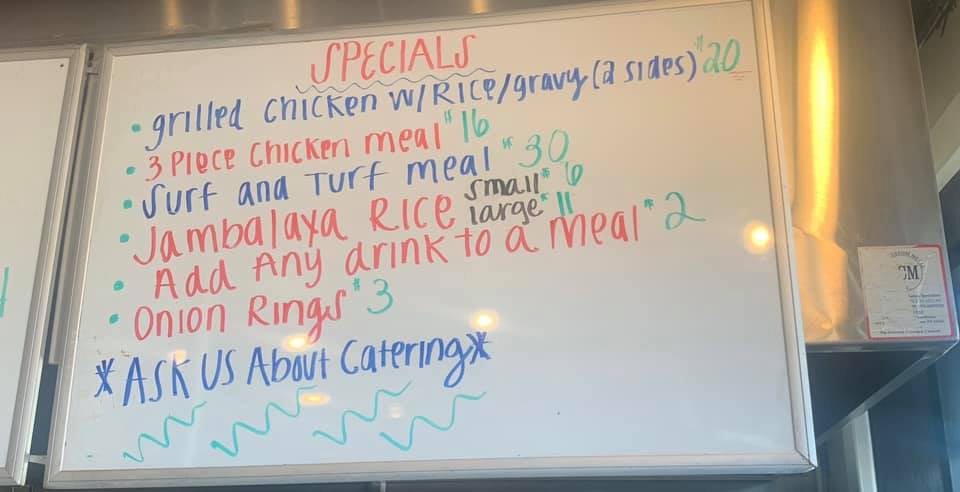 SPECIALS
• grilled chicken w/Rice/gravy (2 sides) $20
• 3 Piece Chicken meal $16
• Surf and Turf meal $30
• Jambalaya Rice small $6
large $11
• Add Any drink to a meal $2
• Onion Rings $3
*ASK US About Catering*
CM